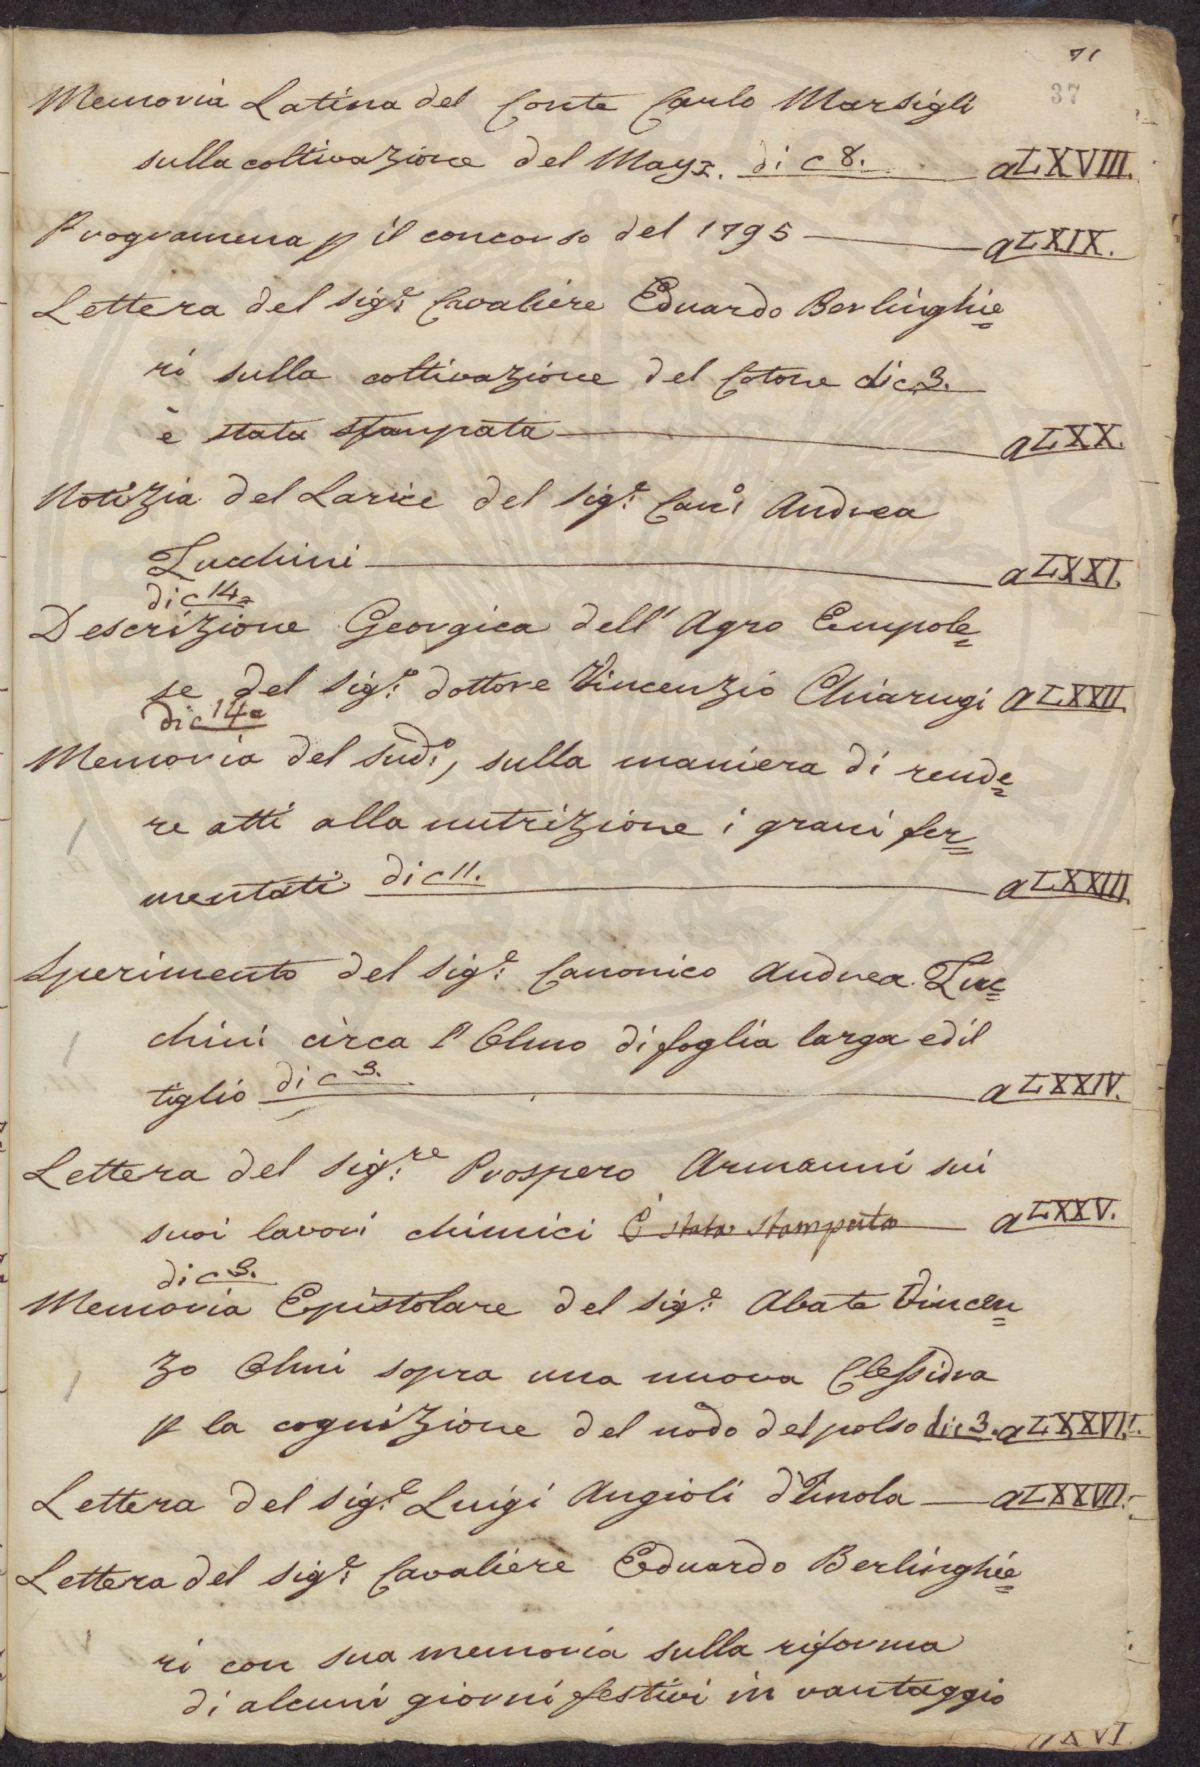 71
37
Memoria Latina del Conte Carlo Marsigli
sulla coltivazione del Mayz. di c 8. a LXVIII.
Programma p il concorso del 1795 a LXIX.
Lettera del Sig.e Cavaliere Eduardo Berlinghie=
ri sulla coltivazione del Cotone di c 3.
è stata stampata a LXX.
Notizia del Larice del Sig.e Can.o Andrea
Zucchini a LXXI.
di c 14=
Descrizione Georgica dell' Agro Empole=
se del Sig.e dottore Vincenzio Chiarugi a LXXII.
di c 14=
Memoria del Sud.o, sulla maniera di rende=
re atti alla nutrizione i grani fer=
mentati di c 11. a LXXIII.
Sperimento del Sig.e Canonico Andrea Zuc=
chini circa l' Olmo di foglia larga ed il
tiglio di c 3. a LXXIV.
Lettera del Sig.re Prospero Armanni sui
suoi lavori chimici È stata stampata a LXXV.
di c 3.
Memoria Epistolare del Sig.e Abate Vincen=
zo Olmi sopra una nuova Clessidra
p la cognizione del modo del polso di c 3. a LXXVI.
Lettera del Sig.e Luigi Angioli d'Imola a LXXVII.
Lettera del Sig.e Cavaliere Eduardo Berlinghie=
ri con sua memoria sulla riforma
di alcuni giorni festivi in vantaggio